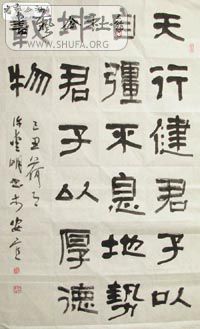 天行健君子以
自彊不息地勢
坤君子以厚德
載物
己丑荷月
WWW.SHUFA.ORG